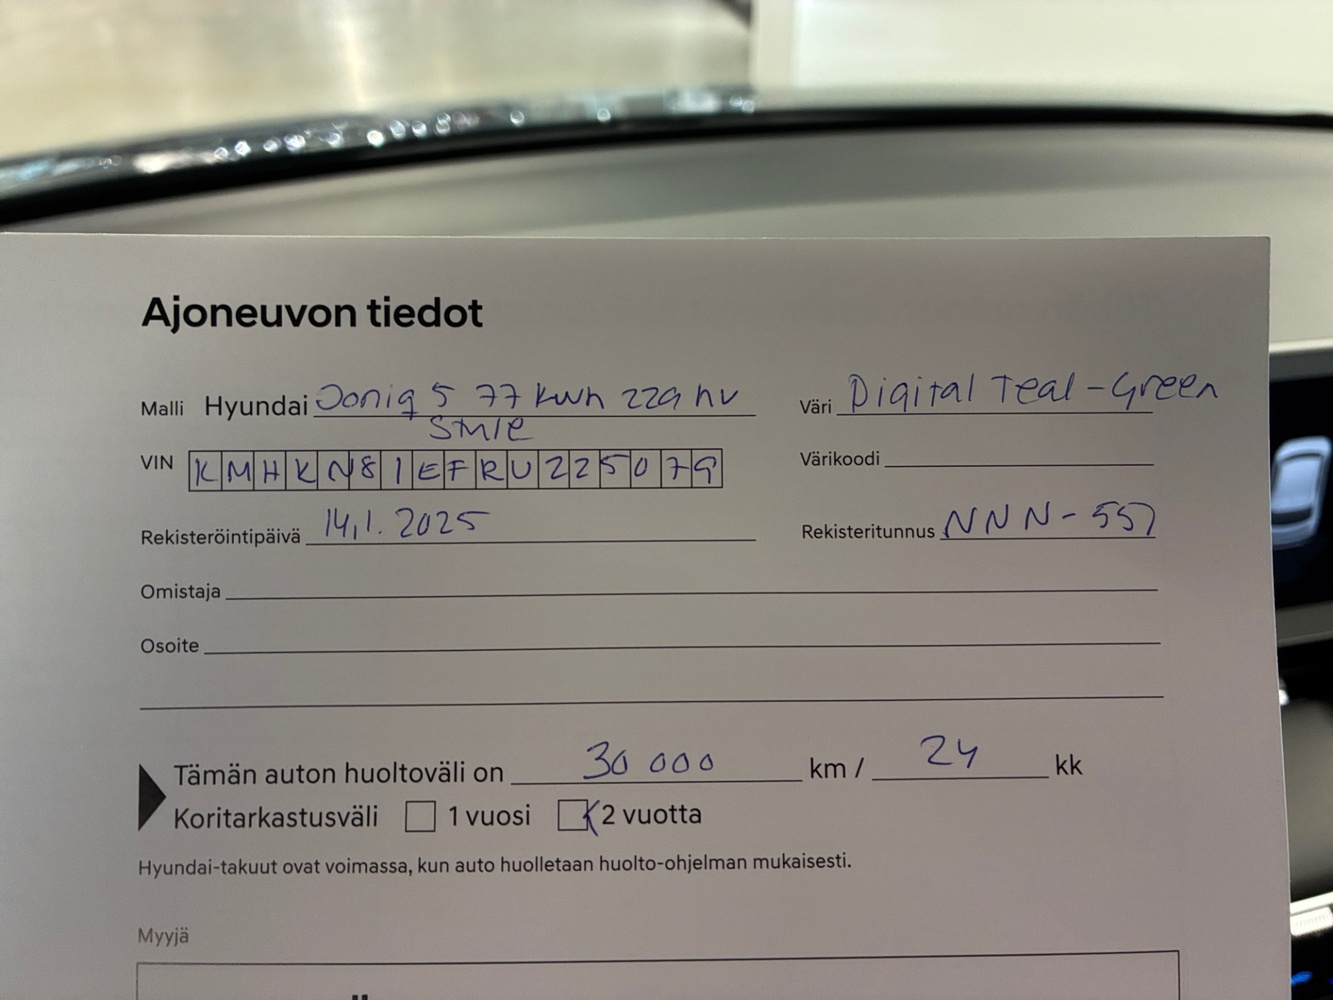 Ajoneuvon tiedot
Malli Hyundai Ioniq 5 77 kwh 229 hv
Style
Väri Digital Teal-Green
VIN KMHKN81EFRU225079
Värikoodi
Rekisteröintipäivä 14.1.2025
Rekisteritunnus NNN-557
Omistaja
Osoite
Tämän auton huoltoväli on 30 000 km / 24 kk
Koritarkastusväli 1 vuosi 2 vuotta
Hyundai-takuut ovat voimassa, kun auto huolletaan huolto-ohjelman mukaisesti.
Myyjä